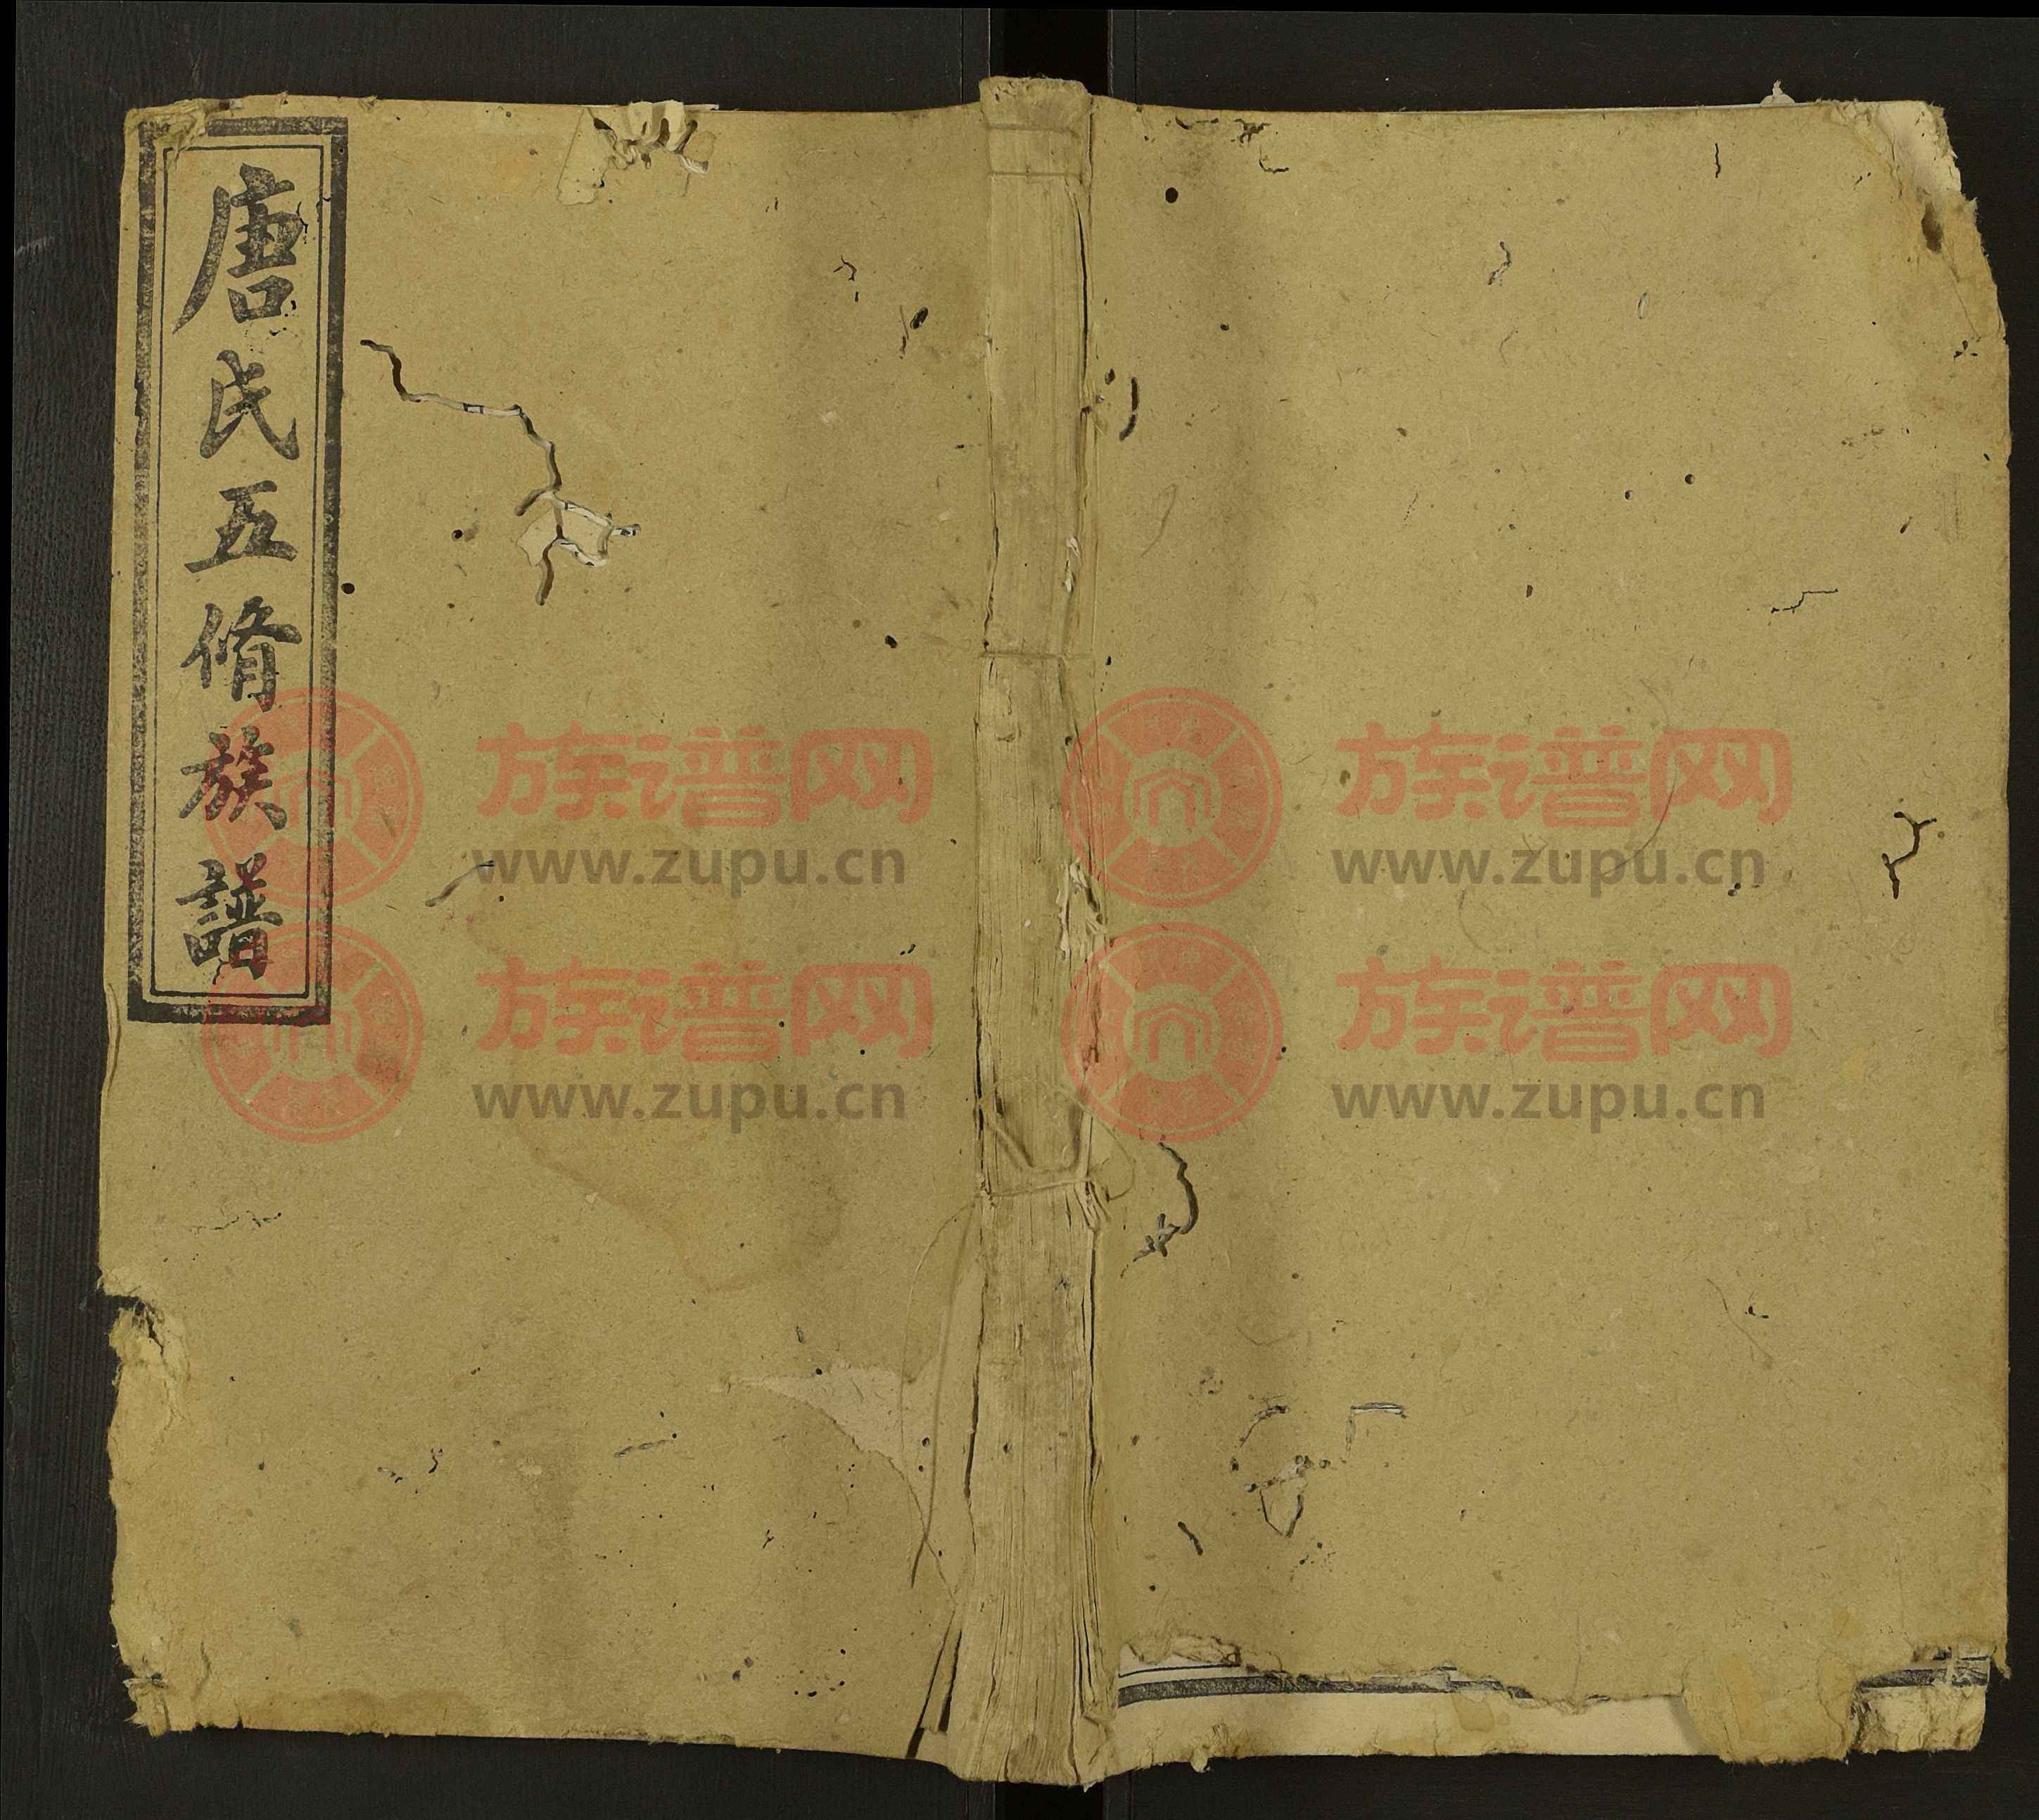 唐氏五脩族譜
族谱网
www.zupu.cn
族谱网
www.zupu.cn
族谱网
www.zupu.cn
族谱网
www.zupu.cn